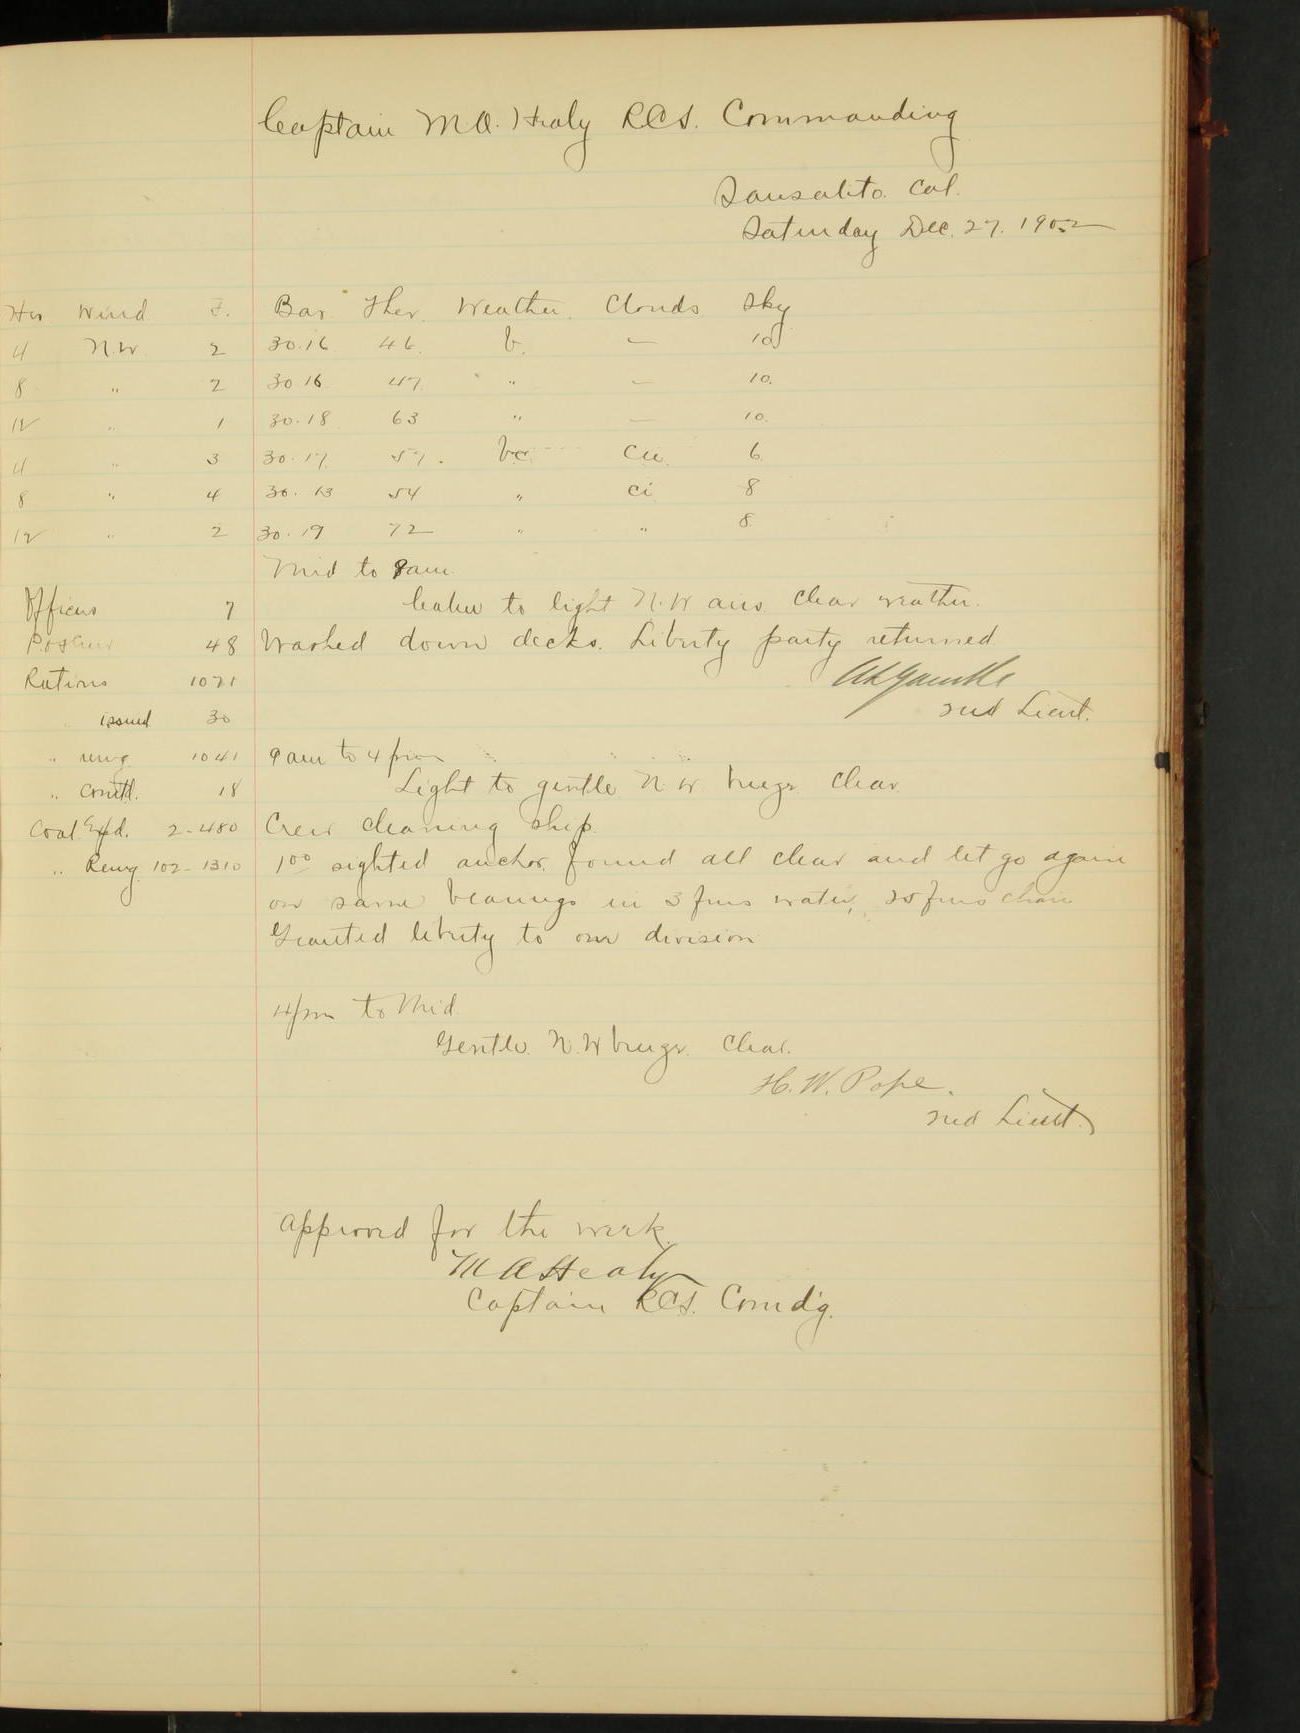 Captain M.A. Healy R.C.S. Commanding
Sausalito. Cal.
Saturday Dec. 27. 1902
Hrs Wind F. Bar Ther. Weather. Clouds Sky
4 N.W. 2 30.16 46. b. — 10
8 " 2 30 16 47 " — 10.
12 " 1 30.18 63 " — 10.
4 " 3 30.17 57. bc Cu. 6
8 " 4 30.13 54 " Ci 8
12 " 2 30.19 72 " " 8
Mid to 8 am
Officers 7 Calm to light N.W airs clear weather.
48 Washed down decks. Liberty party returned.
Rations 1071
2nd Lieut.
" issued 30
" remg 1041 9 am to 4 pm
" 18 Light to gentle N.W breeze clear.
Coal Expd. 2-480 Crew cleaning ship.
" Remg 102-1310 1 00 sighted anchor, found all clear and let go again
on same bearings in 3 fms water, 25 fms chain
Granted liberty to one division
4 pm to Mid.
Gentle N.W breeze. Clear.
H. W. Pope.
2nd Lieut.
Approved for the week.
M A Healy
Captain R.C.S. Comd'g.